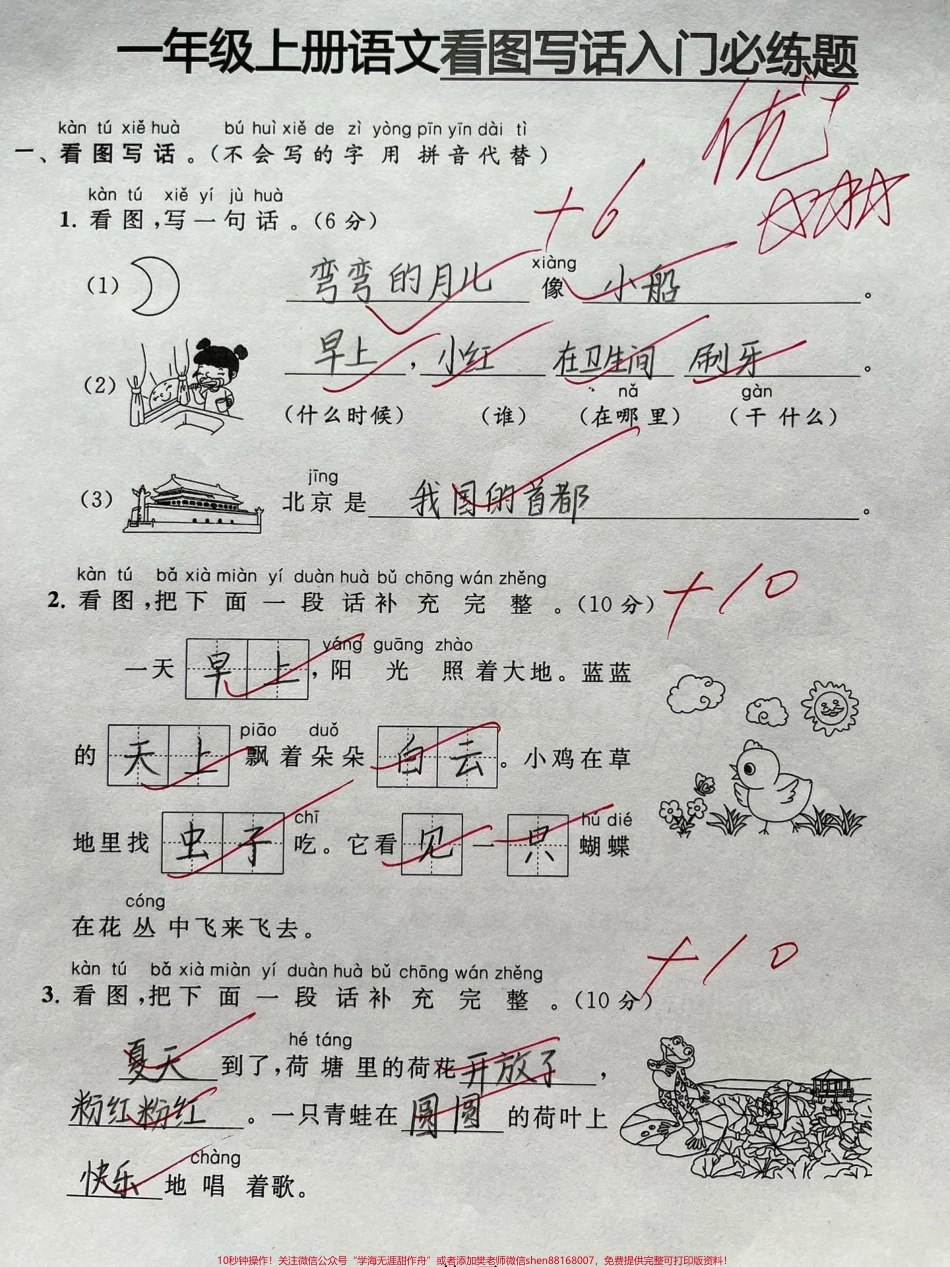 一年级上册语文看图写话入门必练题
优+
kàn tú xiě huà bú huì xiě de zì yòng pīn yīn dài tì
一、看图写话。（不会写的字用拼音代替）
kàn tú xiě yí jù huà
1. 看图，写一句话。（6分） +6
xiàng
（1） 弯弯的月儿 像 小船 。
（2） 早上 ， 小红 在卫生间 刷牙 。
nǎ gàn
（什么时候） （谁） （在哪里） （干什么）
jīng
（3） 北京是 我国的首都 。
kàn tú bǎ xià miàn yí duàn huà bǔ chōng wán zhěng
2. 看图，把下面一段话补充完整。（10分） +10
yáng guāng zhào
一天 早上 ，阳光照着大地。蓝蓝
piāo duǒ
的 天上 飘着朵朵 白云 。小鸡在草
chī hú dié
地里找 虫子 吃。它看 见 一 只 蝴蝶
cóng
在花丛中飞来飞去。
+10
kàn tú bǎ xià miàn yí duàn huà bǔ chōng wán zhěng
3. 看图，把下面一段话补充完整。（10分）
hé táng
夏天 到了，荷塘里的荷花 开放了 ，
粉红粉红 。一只青蛙在 圆圆 的荷叶上
chàng
快乐 地唱着歌。
10秒钟操作！关注微信公众号“学海无涯甜作舟”或者添加樊老师微信shen88168007，免费提供完整可打印版资料！